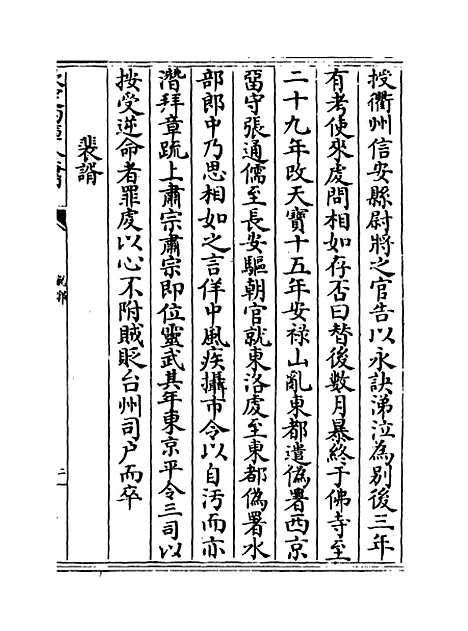 授衢州信安縣尉將之官告以永訣涕泣為别後三年
有考使來虔問相如存否曰替後數月暴終于佛寺至
二十九年改天寶十五年安禄山亂東都遣偽署西京
留守張通儒至長安驅朝官就東洛虔至東都偽署水
部郎中乃思相如之言佯中風疾攝市令以自汚而亦
潛拜章疏上肅宗肅宗即位靈武其年東京平令三司以
按受逆命者罪虔以心不附賊貶台州司户而卒
裴諝
説郛
二